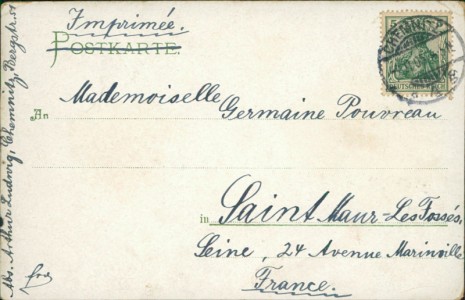 Imprimée.
POSTKARTE.
An Mademoiselle Germaine Pouvreau
in Saint Maur-Les Fossés,
Seine, 24 Avenue Marinville
France.
Abs. Arthur Ludwig, Chemnitz, Bergstr. 51
CHEMNITZ
5